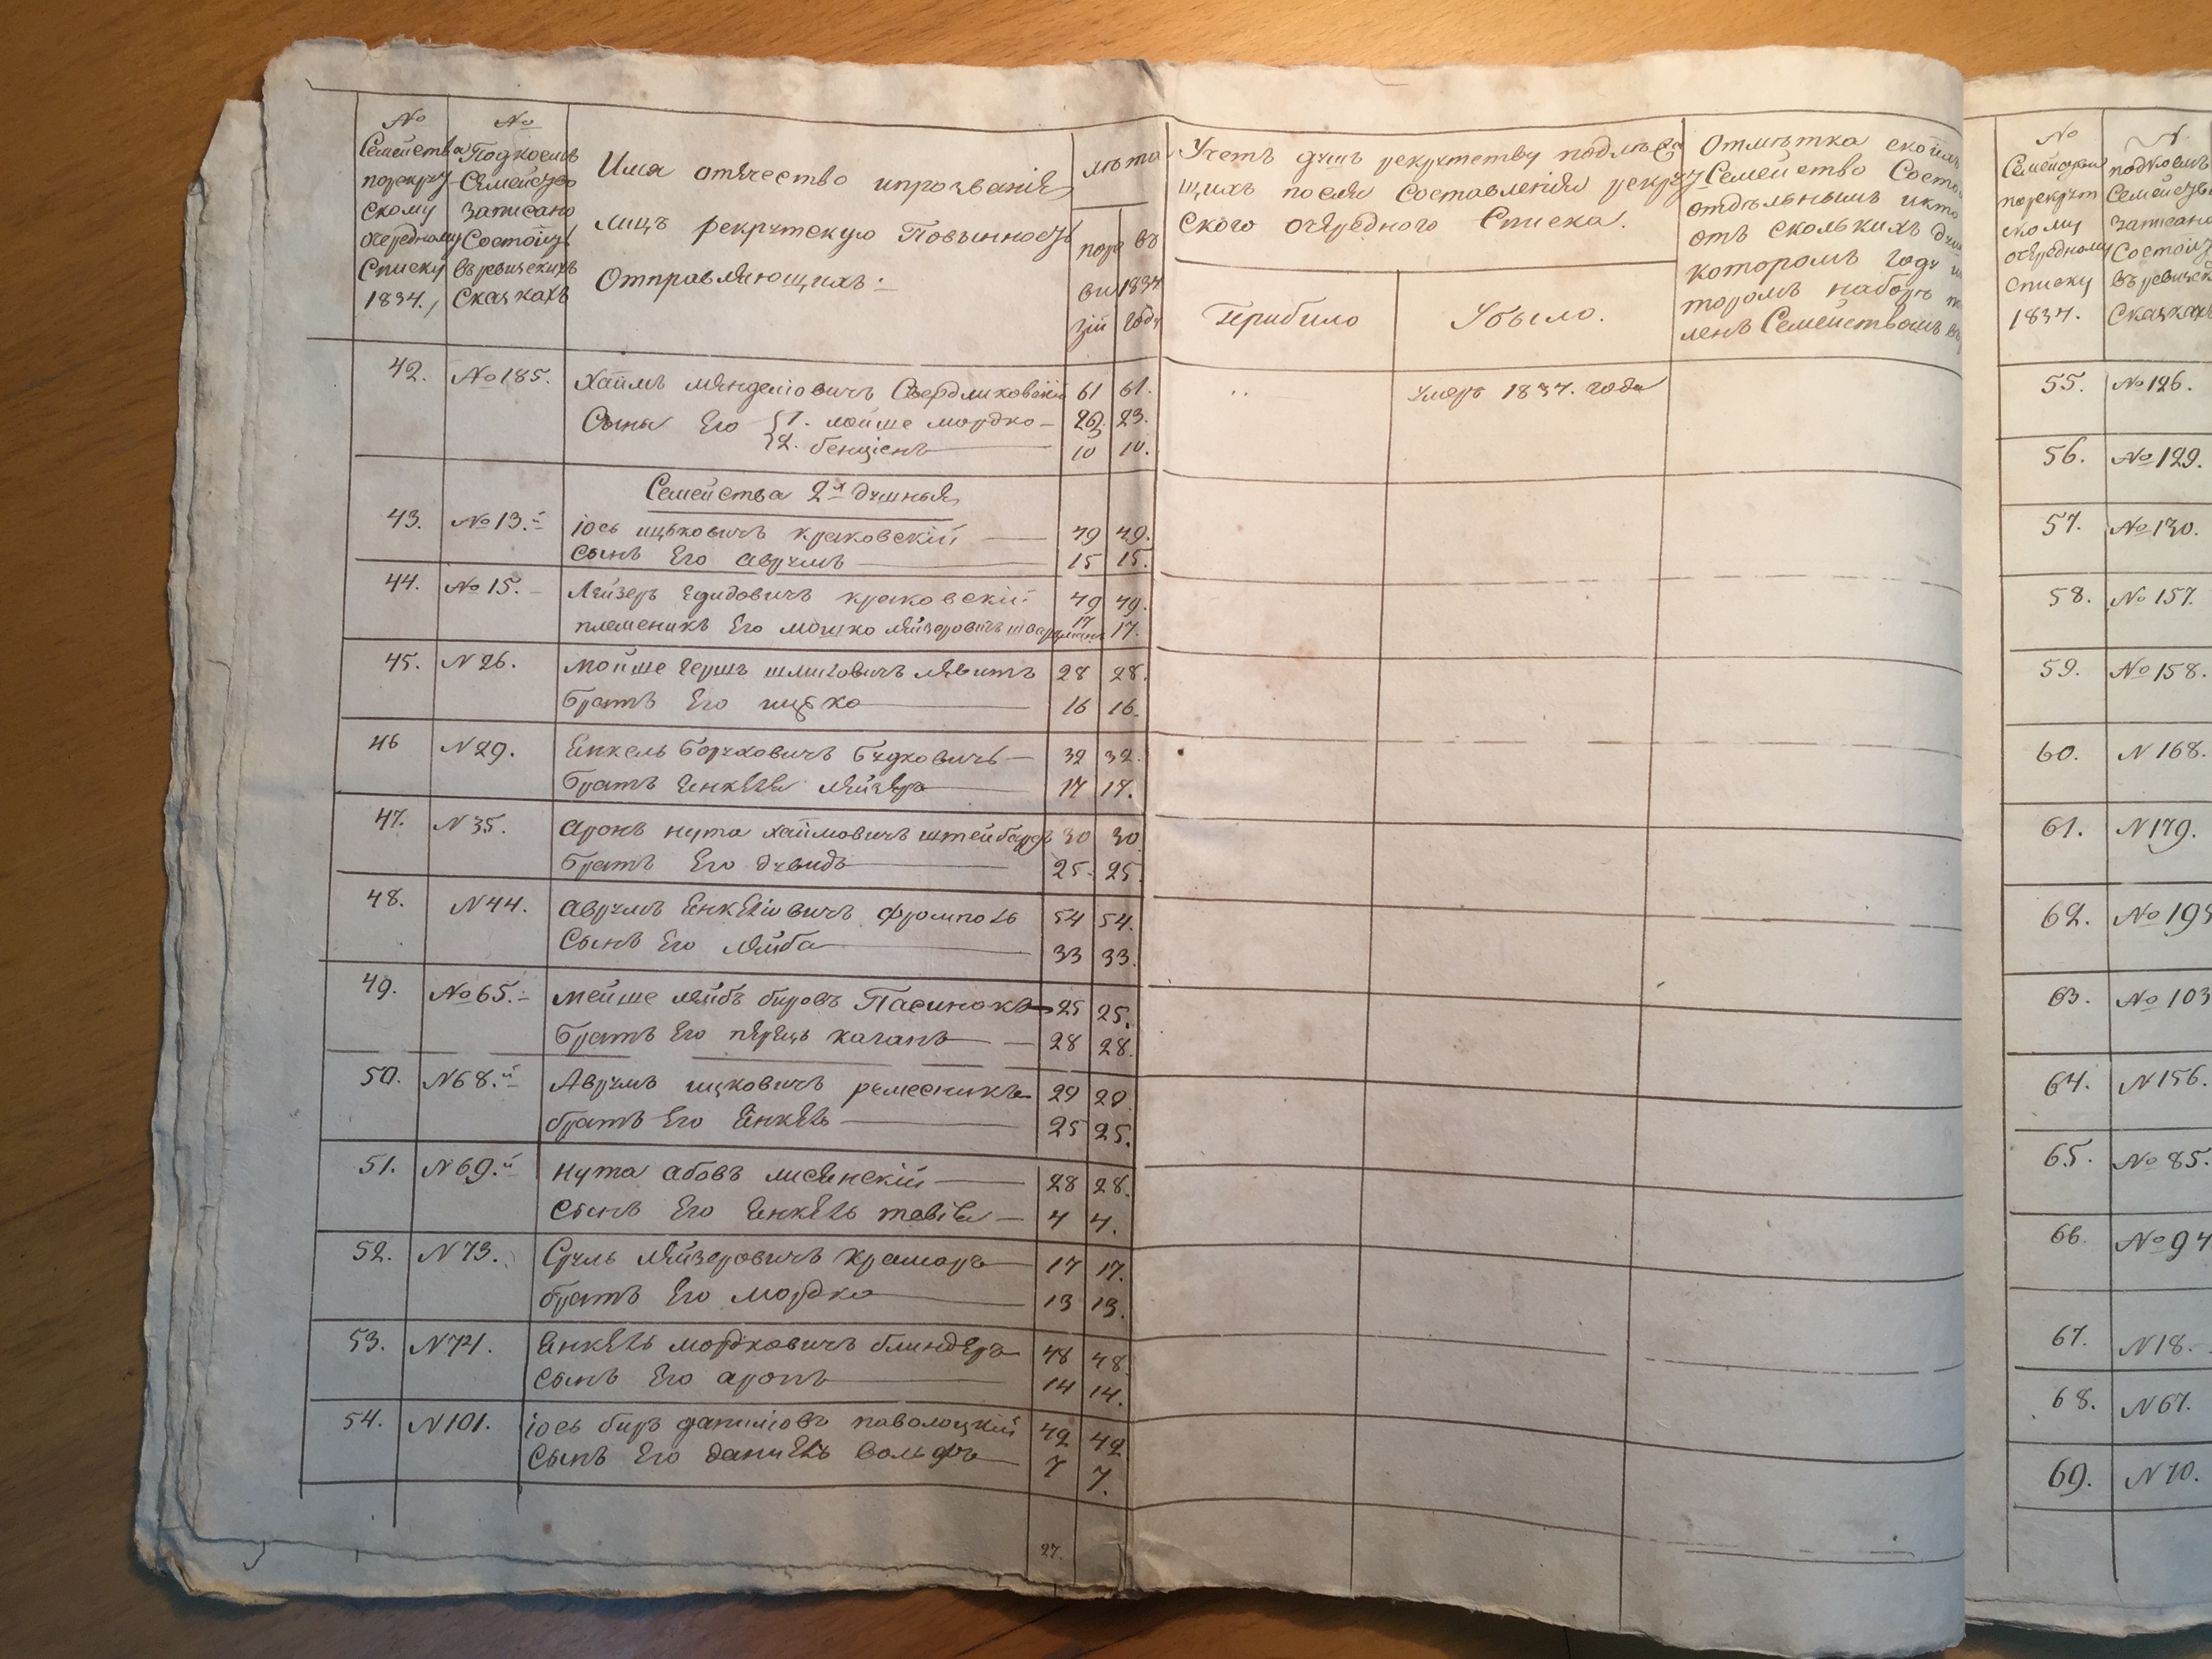 № Семейства порекрутскому очередному Списку 1834.
№ Подкоимъ Семейство записано Состоитъ въ ревизскихъ Сказкахъ
Имя отчество ипрозванія
лицъ рекрутскую Повѣнность
Отправляющихъ:
лѣта
поревизій
въ 1834 году
Учетъ душъ рекрутству подлежащихъ послѣ Составленія рекрутского очередного Списка.
Прибило
Убыло.
Отмѣтка
Семейство
отдѣльнымъ
отъ сколькихъ
которомъ году
торомъ наборѣ
ленъ Семействомъ
42. №185. Хаимъ менделіовичъ Свердликовскій 61 61. умеръ 1837. года
Сыны Его 1. мойше мордко 23.
2. бенціонъ 10 10.
Семейства 2х душныя
43. №13.й іось ицьковичъ краковскій 49 49.
Сынъ Его аврумъ 15 15.
44. №15. Лейзеръ краковскій 49 49.
племеникъ Его мошко лейзеровичъ 17 17.
45. N26. мойше герш шлиомовичъ левитъ 28 28.
братъ Его ицко 16 16.
46 N29. Енкель боруховичъ будковичъ 32 32.
братъ Енкеля лейзеръ 17 17.
47. N35. аронъ нута хаимовичъ 30 30
братъ Его давидъ 25. 25
48. N44. аврумъ Енкеліовичъ 54 54.
Сынъ Его лейба 33 33.
49. №65. мойше лейбъ беровъ Пасинокъ 25 25.
братъ Его перець каганъ 28 28.
50. N68.й Аврумъ ицковичъ ремесникъ 29 29.
братъ Его Енкель 25 25.
51. N69.й нута абовъ лисянскій 28 28.
Сынъ Его Енкель 4 4.
52. N73. Сруль лейзеровичъ крамаръ 17 17.
братъ Его мордко 13 13.
53. N74. Енкель мордковичъ блиндеръ 48 48.
Сынъ Его аронъ 14 14.
54. N101. іось беръ даниліовъ паволоцкій 42 42
Сынъ Его даниель вольфъ 7 7.
27.
№
порекрут
скому
очередному
списку
1834.
подкоимъ
записано
55. №126.
56. №129.
57. №130.
58. №157.
59. №158.
60. N168.
61. N179.
62. №
63. №103
64. N156.
65. №85.
66. №94
67. N18.
68. N67.
69. N70.